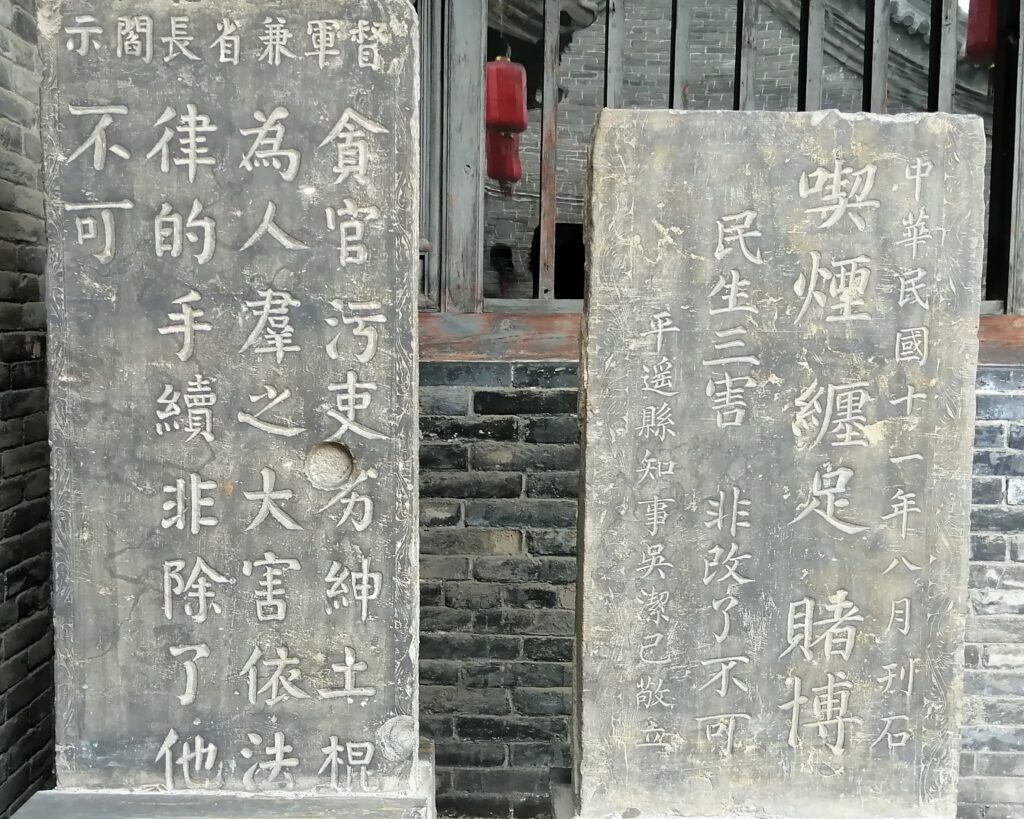 督軍兼省長閻示
貪官污吏劣紳土棍
為人羣之大害依法
律的手續非除了他
不可
中華民國十一年八月刊石
喫煙纏足賭博
民生三害 非改了不可
平遙縣知事吳潔己敬立